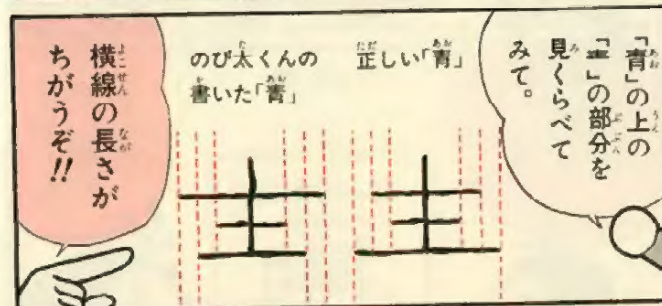 「青」の上の
「龶」の部分を
見くらべて
みて。
正しい「青」
のび太くんの
書いた「青」
横線の長さが
ちがうぞ!!